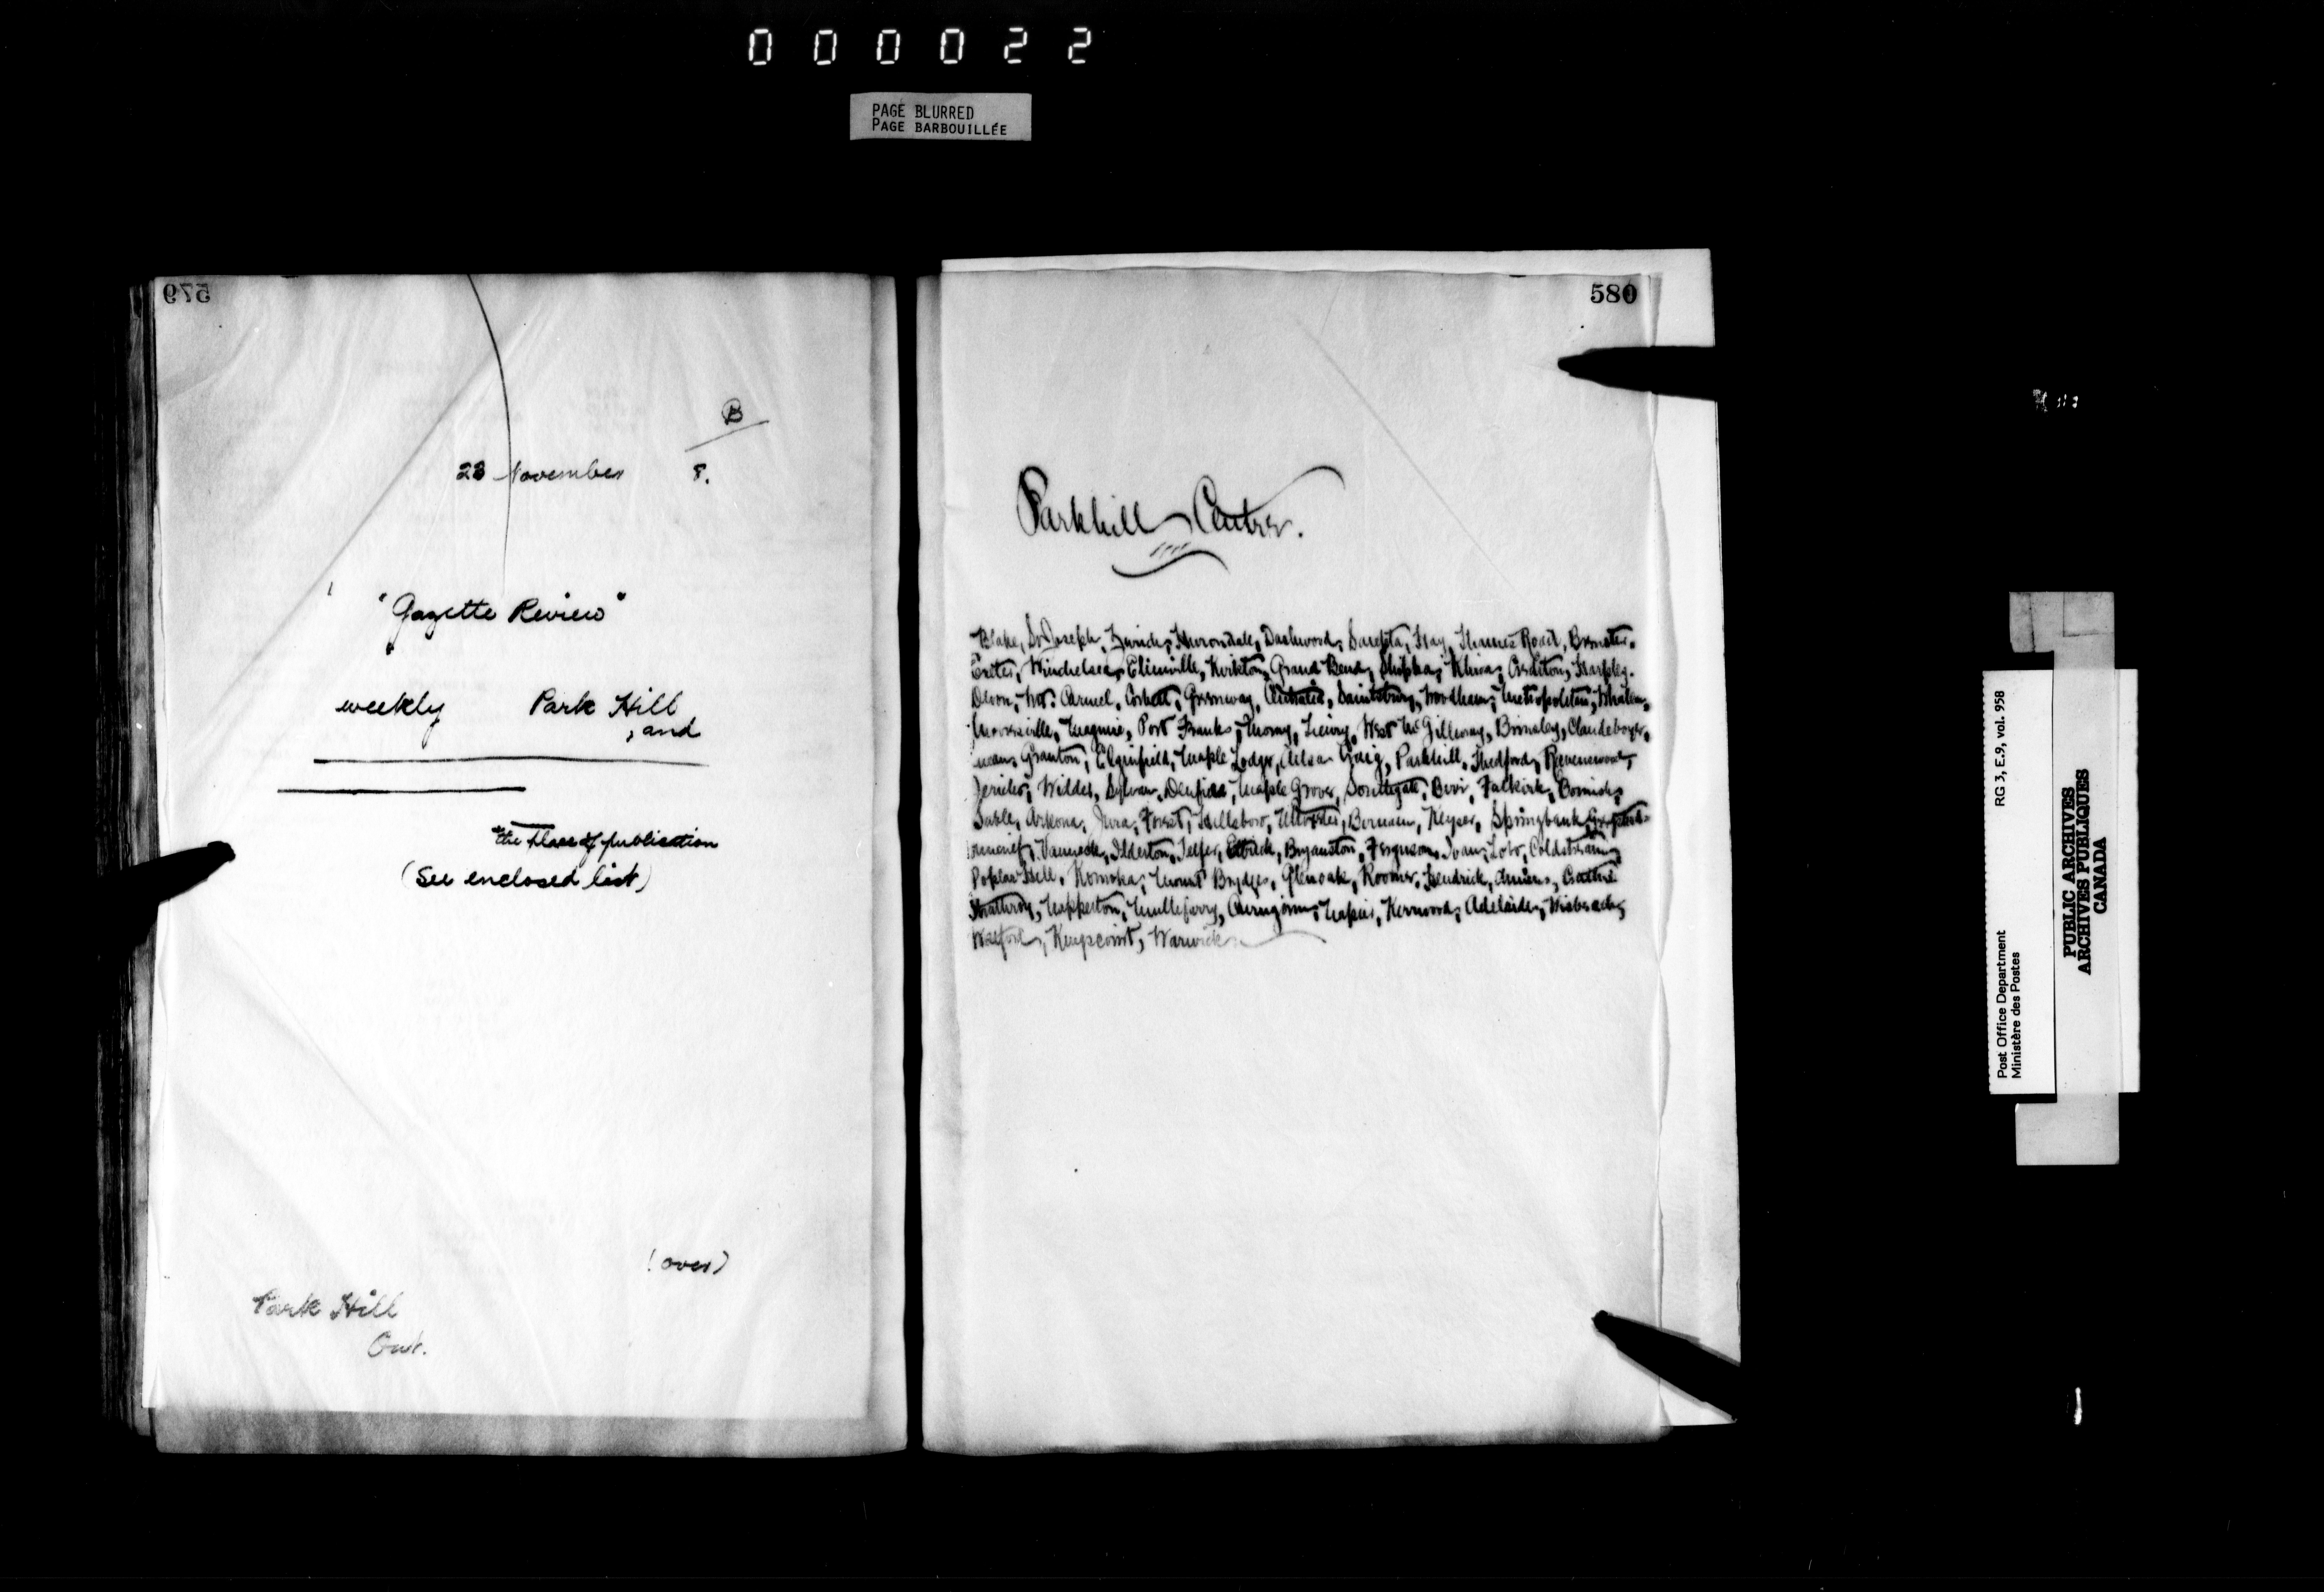 000022
PAGE BLURRED
PAGE BARBOUILLÉE
579
B
23 November 8.
"Gazette Review"
weekly Park Hill
, and
the place of publication
(See enclosed list)
(over)
Park Hill
Ont.
580
Parkhill Centre.
Blake, St Joseph, Zurich, Hurondale, Dashwood, Sarepta, Hay, Thames Road, Brewster.
Exeter, Winchelsea, Elimville, Kirkton, Grand Bend, Shipka, Khiva, Crediton, Harpley.
Dixon, Mt. Carmel, Corbett, Greenway, Centralia, Saintsbury, Woodham, Metropolitan, Whalen,
Mooresville, Maguire, Port Franks, Moray, Lieury, West McGillivray, Brinsley, Clandeboye,
Granton, Elginfield, Maple Lodge, Ailsa Craig, Parkhill, Thedford, Ravenswood,
Jericho, Widder, Sylvan, Denfield, Maple Grove, Southgate, Birr, Falkirk, Bornish,
Sable, Arkona, Jura, Forest, Hillsboro, Uttoxeter, Birnam, Keyser, Springbank,
Vanneck, Ilderton, Telfer, Ettrick, Bryanston, Ferguson, Ivan, Lobo, Coldstream,
Poplar Hill, Komoka, Mount Brydges, Glenoak, Kendrick, Amiens,
Strathroy, Napperton, Mullifarry, Cairngorm, Napier, Kerwood, Adelaide, Wisbeach,
Watford, Kingscourt, Warwick
Post Office Department RG 3, E.9, vol. 958
Ministère des Postes
PUBLIC ARCHIVES
ARCHIVES PUBLIQUES
CANADA